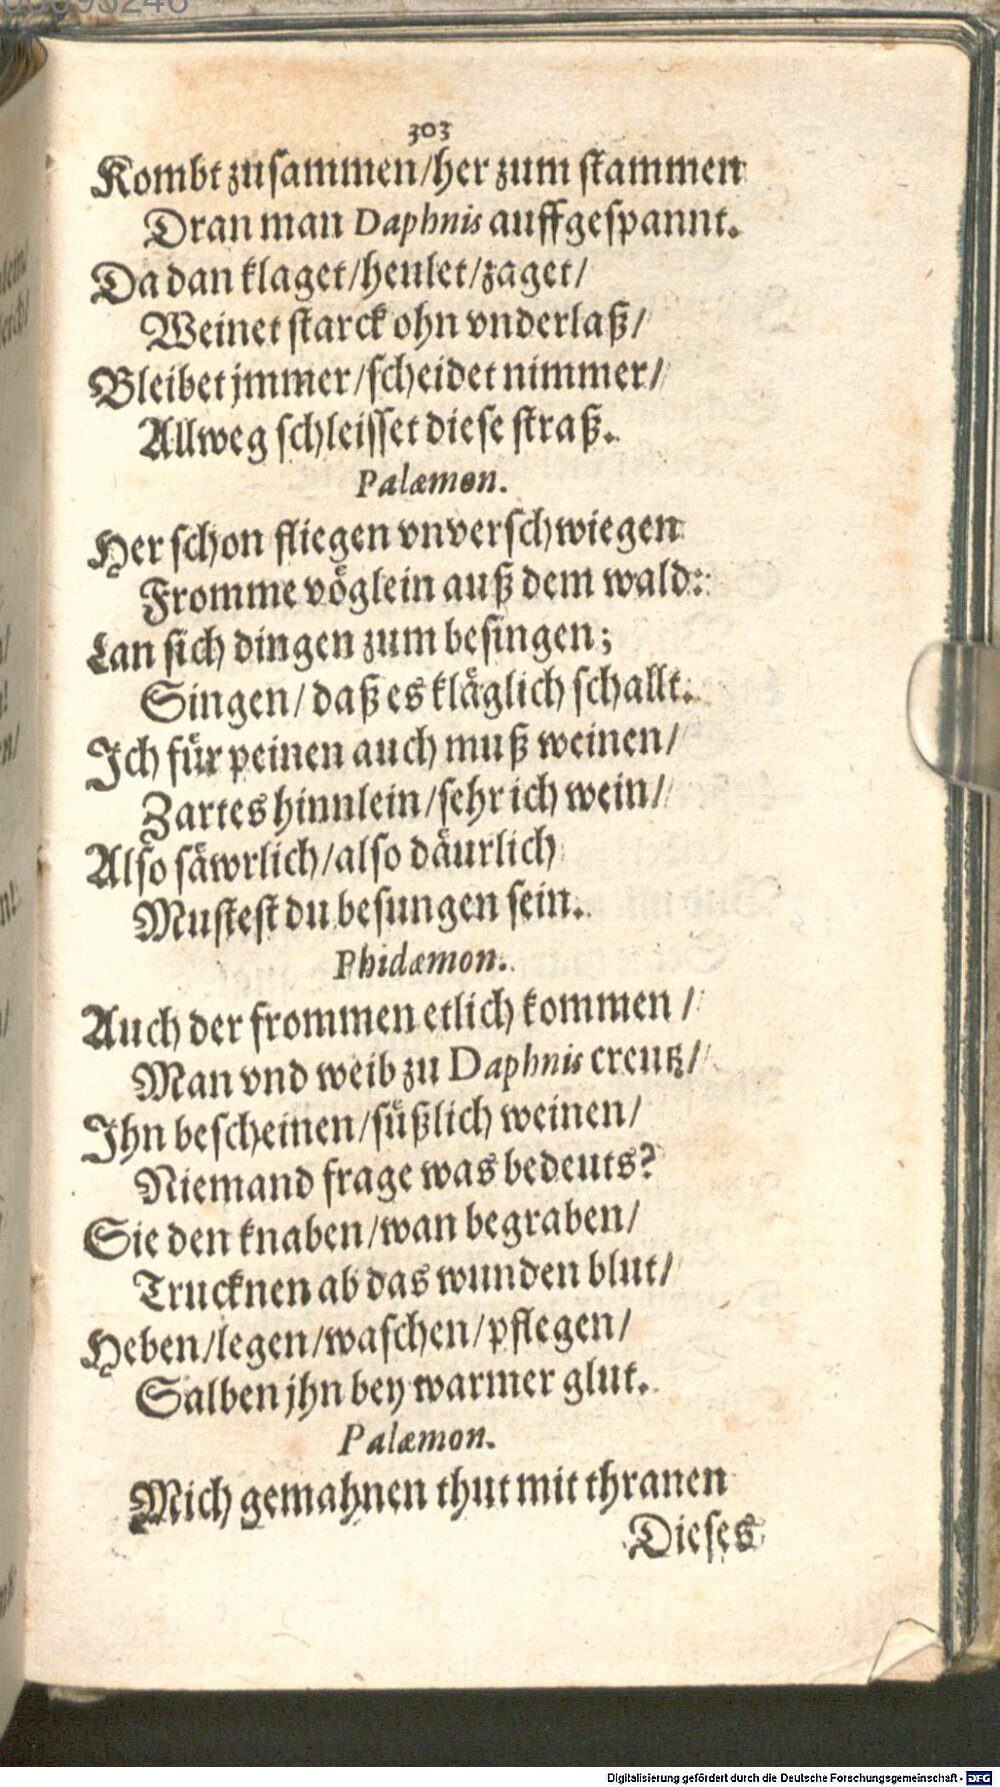 303
Kombt zusammen/her zum stammen
Dran man Daphnis auffgespannt.
Da dan klaget/heulet/zaget/
Weinet starck ohn vnderlaß/
Bleibet jmmer/scheidet nimmer/
Allweg schleisset diese straß.
Palæmon.
Her schon fliegen vnverschwiegen
Fromme vöglein auß dem wald:
Lan sich dingen zum besingen;
Singen/ daß es kläglich schallt.
Ich für peinen auch muß weinen/
Zartes hinnlein/sehr ich wein/
Also säwrlich/also däurlich
Mustest du besungen sein.
Phidæmon.
Auch der frommen etlich kommen/
Man vnd weib zu Daphnis creutz/
Ihn bescheinen/süßlich weinen/
Niemand frage was bedeuts?
Sie den knaben/wan begraben/
Trucknen ab das wunden blut/
Heben/legen/waschen/pflegen/
Salben jhn bey warmer glut.
Palæmon.
Mich gemahnen thut mit thranen
Dieses
Digitalisierung gefördert durch die Deutsche Forschungsgemeinschaft - DFG